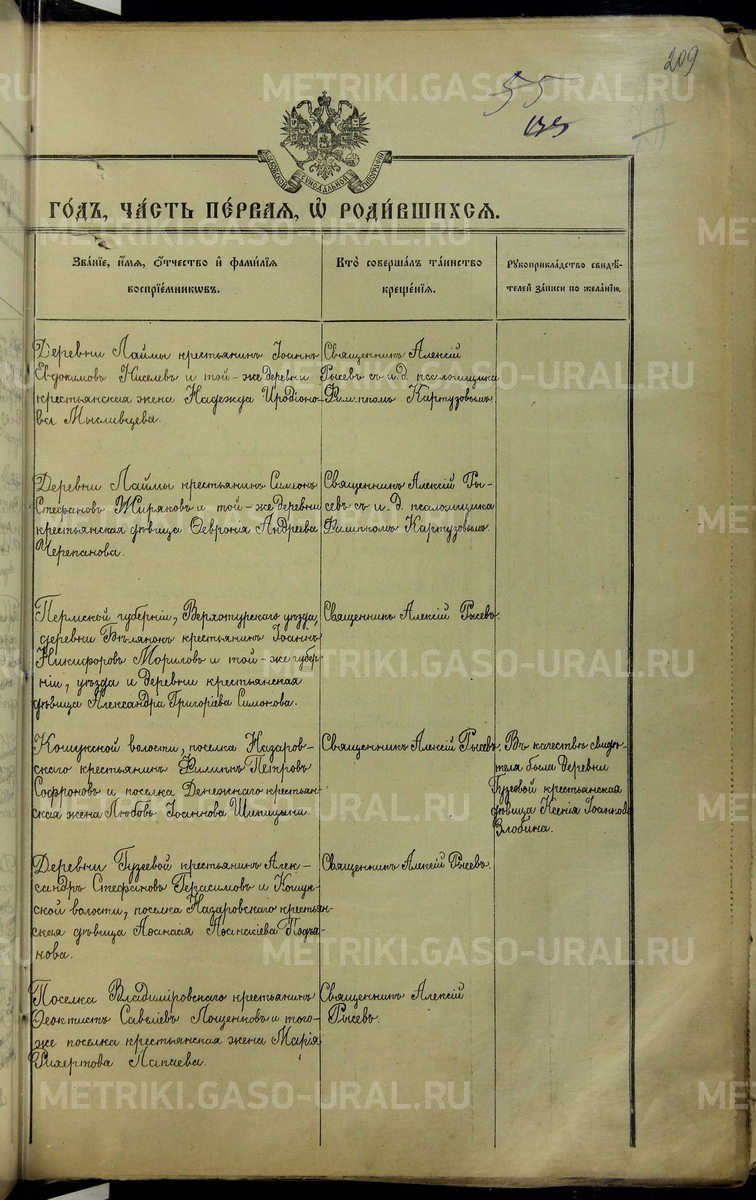 209
55
METRIKI.GASO-URAL.RU
МОСКОВСКОЙ СѴНОДАЛЬНОЙ ТИПОГРАФІИ
ГО́ДЪ, ЧА́СТЬ ПЕ́РВАЯ, Ѡ҆ РОДИ́ВШИХСЯ.
Зва́нїе, и҆́мѧ, ѻ҆́тчество и҆ фами́лїѧ
воспрїе́мникѡвъ.
Кто̀ соверша́лъ та́инство
креще́нїѧ.
Рꙋкоприкла́дство свидѣ́-
телей за́писи по жела́нїю.
Деревни Лаймы крестьянинъ Іоаннъ
Евфимовъ Киселевъ и той-же деревни
крестьянская жена Надежда Иродіоно-
ва Мысливцева.
Священникъ Алексій
Рысевъ съ и. д. псаломщика
Филиппомъ Картузовымъ.
Деревни Лаймы крестьянинъ Симеонъ
Стефановъ Жиряковъ и той-же деревни
крестьянская дѣвица Ѳевронія Андреева
Черепанова.
Священникъ Алексій Ры-
севъ съ и. д. псаломщика
Филиппомъ Картузовымъ.
Пермской губерніи, Верхотурскаго уѣзда,
деревни Бѣлянокъ крестьянинъ Іоаннъ
Никифоровъ Мориловъ и той-же губер-
ніи, уѣзда и деревни крестьянская
дѣвица Александра Григоріева Симонова.
Священникъ Алексій Рысевъ.
Кошукской волости, поселка Назаров-
скаго крестьянинъ Филиппъ Петровъ
Софроновъ и поселка Денежнаго крестьян-
ская жена Любовь Іоаннова Шипицына.
Священникъ Алексій Рысевъ.
Въ качествѣ свидѣ-
теля была деревни
Гузеевой крестьянская
дѣвица Ксенія Іоаннова
Злобина.
Деревни Гузеевой крестьянинъ Алек-
сандръ Стефановъ Герасимовъ и Кошук-
ской волости, поселка Назаровскаго крестьян-
ская дѣвица Аѳанасія Аѳанасіева Подъя-
нова.
Священникъ Алексій Рысевъ.
Поселка Владиміровскаго крестьянинъ
Ѳеоктистъ Савеліевъ Лощенковъ и того-
же поселка крестьянская жена Марія
Рихертова Лапаева.
Священникъ Алексій
Рысевъ.